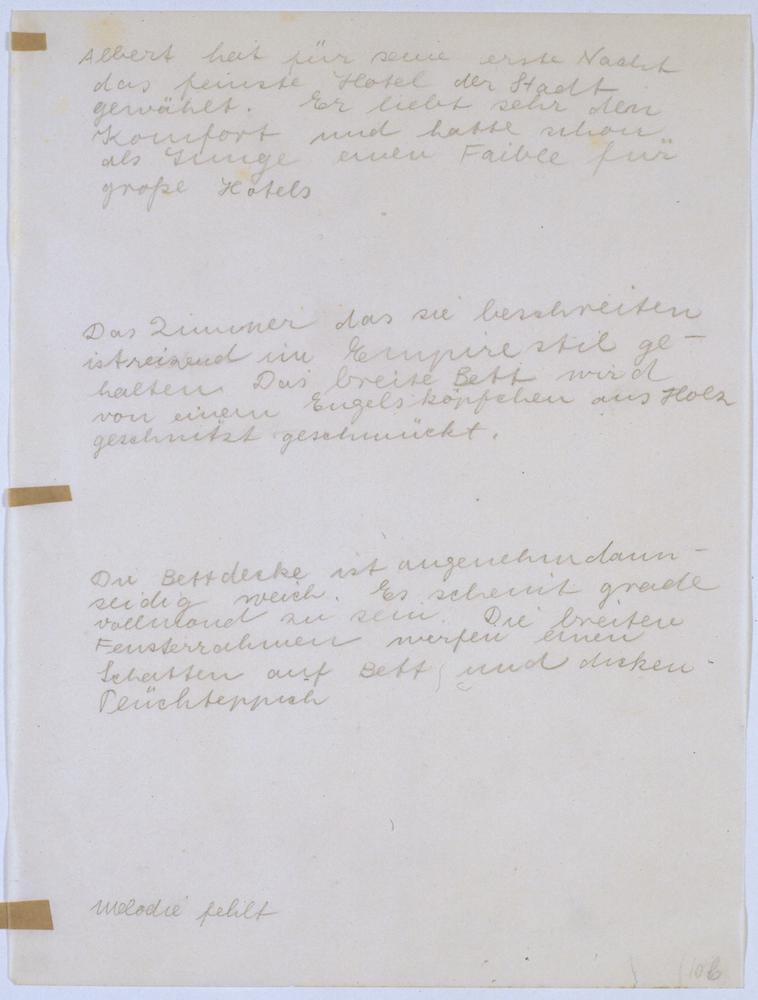 Albert hat für seine erste Nacht
das feinste Hotel der Stadt
gewählt. Er liebt sehr den
Komfort und hatte schon
als Junge einen Faible für
große Hotels
Das Zimmer das sie beschreiten
ist reizend im Empire stil ge-
halten. Das breite Bett wird
von einem Engelsköpfchen aus Holz
geschnitzt geschmückt.
Die Bettdecke ist angenehm daun-
seidig weich. Es scheint grade
vollmond zu sein. Die breiten
Fensterrahmen werfen einen
Schatten auf Bett und dicken
Plüchteppich
Melodie fehlt